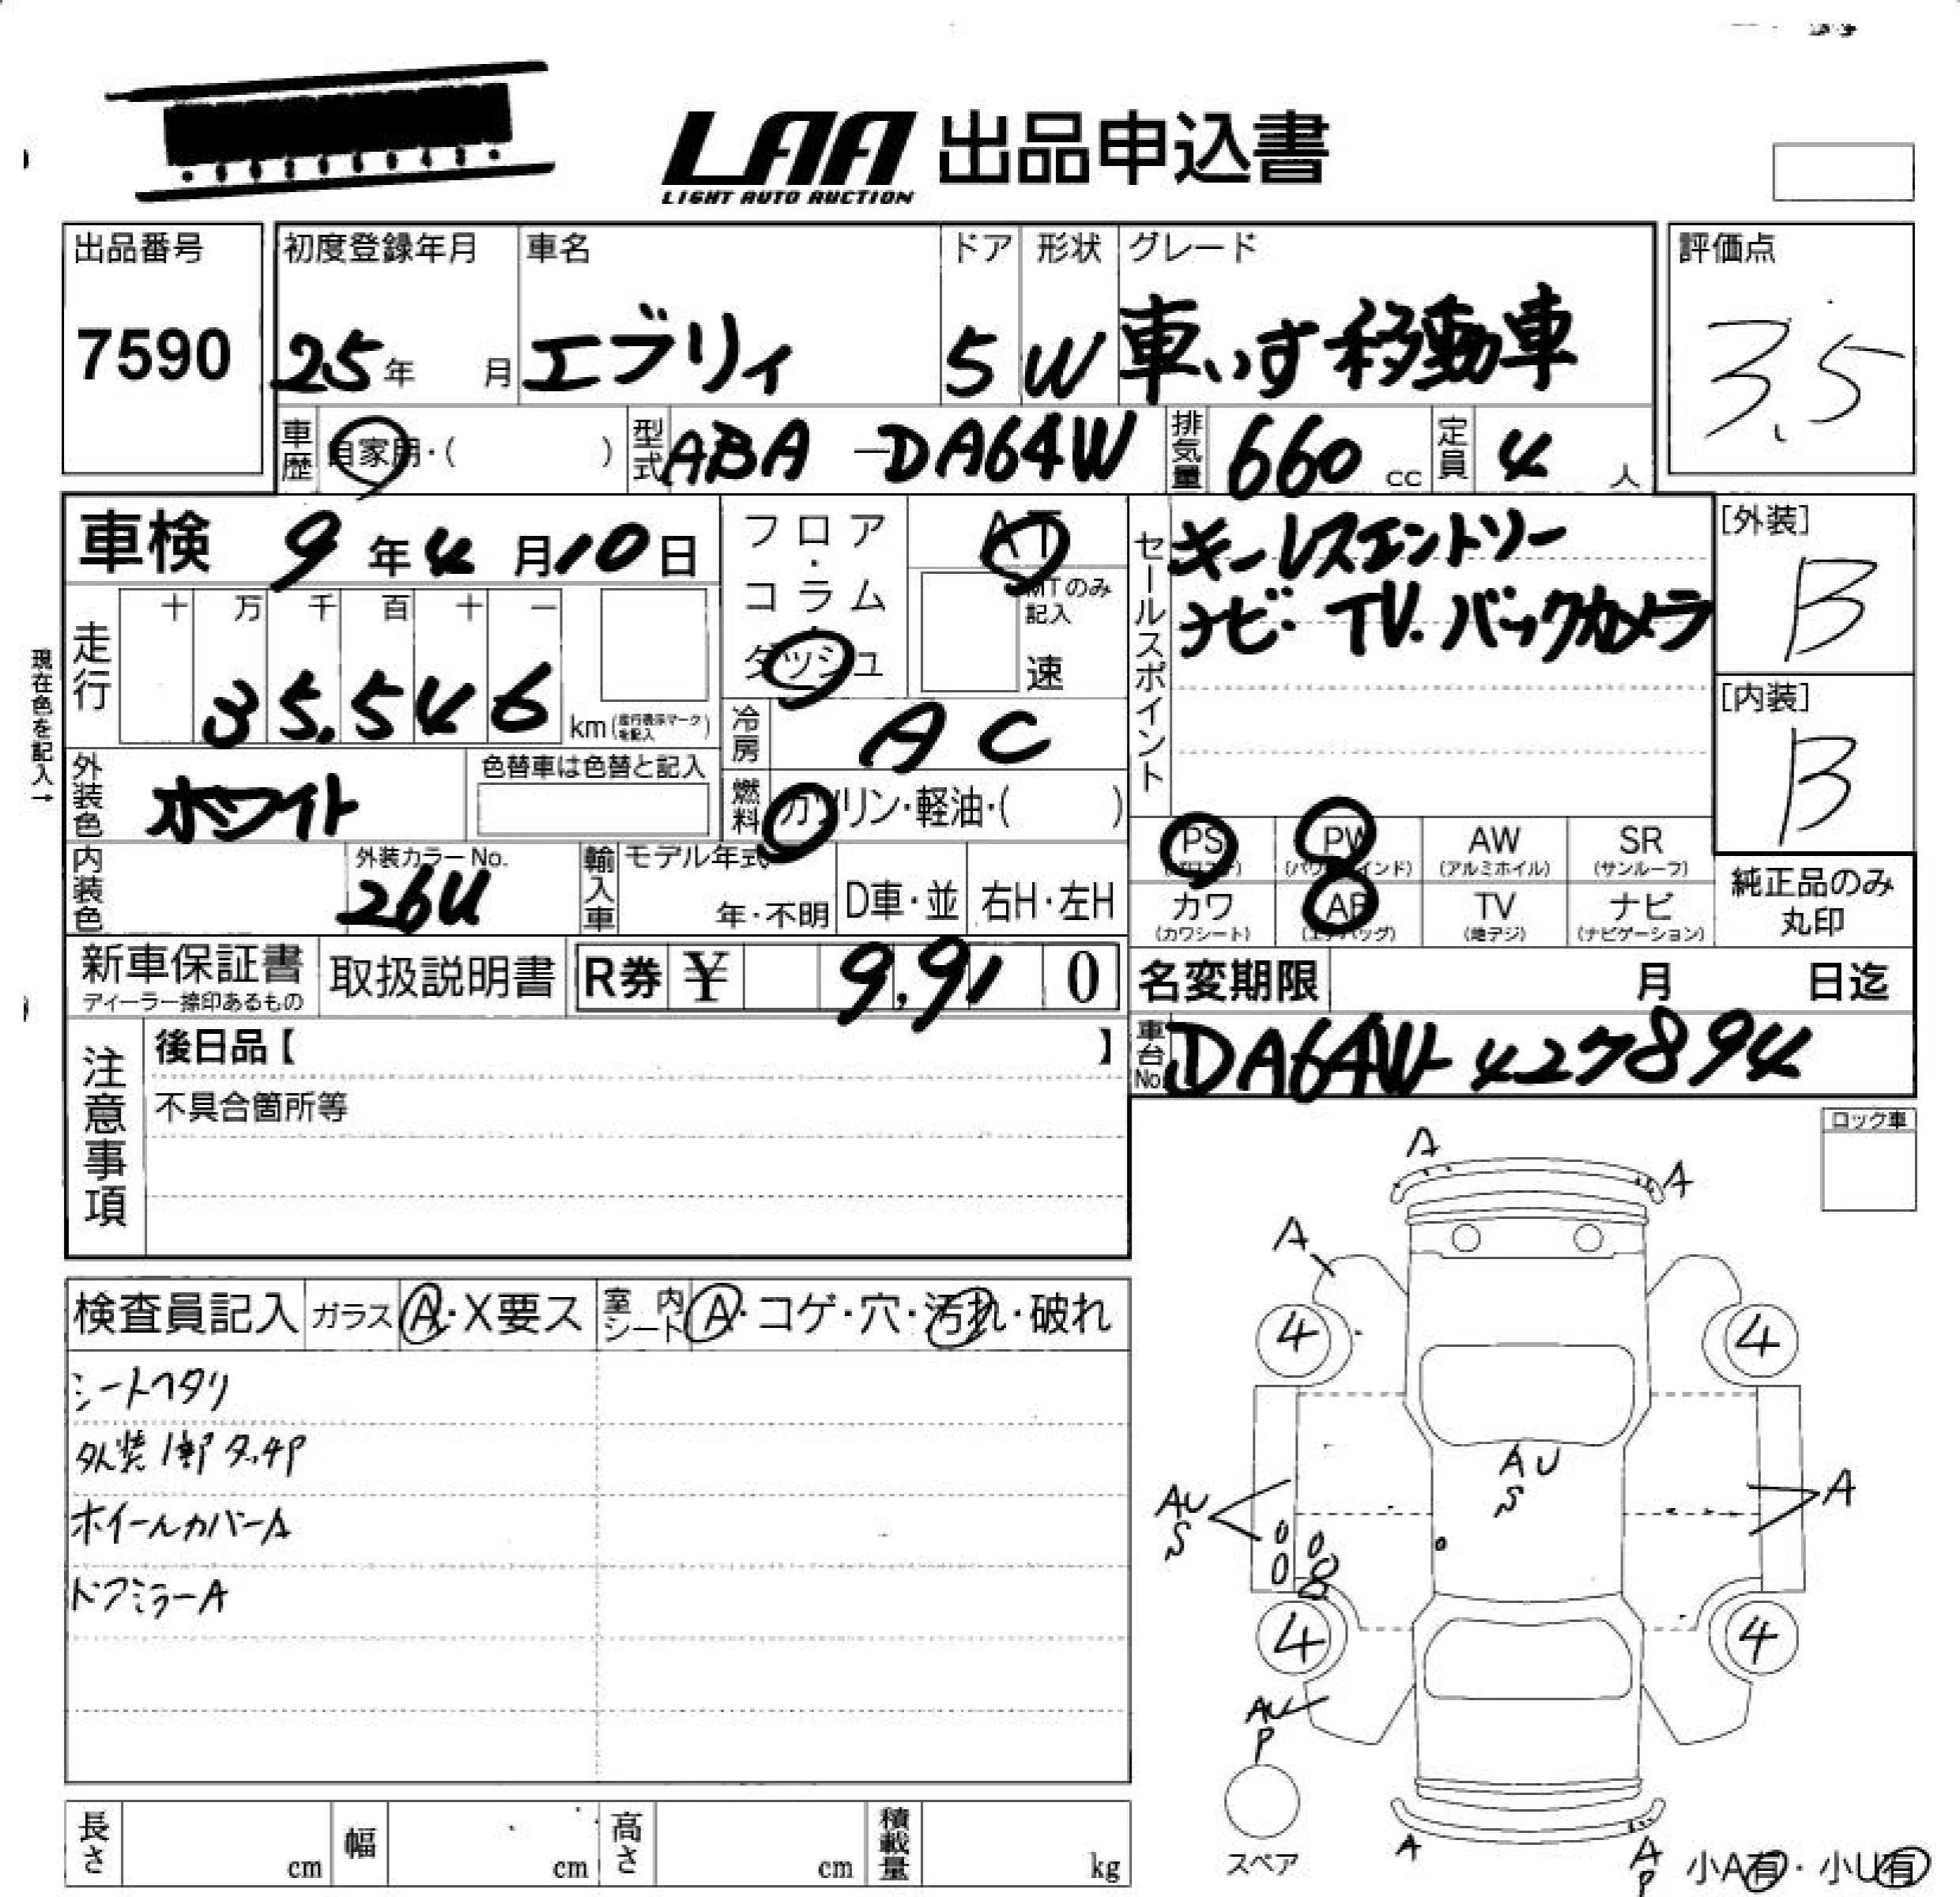 LAA 出品申込書
LIGHT AUTO AUCTION
出品番号
7590
初度登録年月
25年 月
車名
エブリィ
ドア
5
形状
W
グレード
車いす移動車
評価点
3.5
車歴 自家用・( )
型式 ABA-DA64W
排気量 660 cc
定員 4 人
車検 9年4月10日
フロア・コラム・ダッシュ
AT
MTのみ記入
速
セールスポイント
キーレスエントリー
ナビ・TV.バックカメラ
[外装]
B
[内装]
B
現在色を記入→
走行 十 万 千 百 十 一
35,546 km(走行表示マークを記入)
冷房 AC
外装色 ホワイト
色替車は色替と記入
燃料 ガソリン・軽油・( )
内装色
外装カラーNo.
26U
輸入車 モデル年式
年・不明
D車・並
右H・左H
PS
PW
AW
(アルミホイル)
SR
(サンルーフ)
カワ
(カワシート)
AB
(エアバッグ)
TV
(地デジ)
ナビ
(ナビゲーション)
純正品のみ
丸印
新車保証書
ディーラー捺印あるもの
取扱説明書
R券 ¥ 9,91 0
名変期限 月 日迄
車台No. DA64W-427894
注意事項
後日品【 】
不具合箇所等
ロック車
検査員記入 ガラス A・X要ス 室内シート A・コゲ・穴・汚れ・破れ
シートヘタリ
外装1部タッチP
ホイールカバーA
ドアミラーA
A
A
A
4
4
AU
S
AU
S
A
4
4
AU
P
スペア
A
A
P
小A有・小U有
長さ cm
幅 cm
高さ cm
積載量 kg